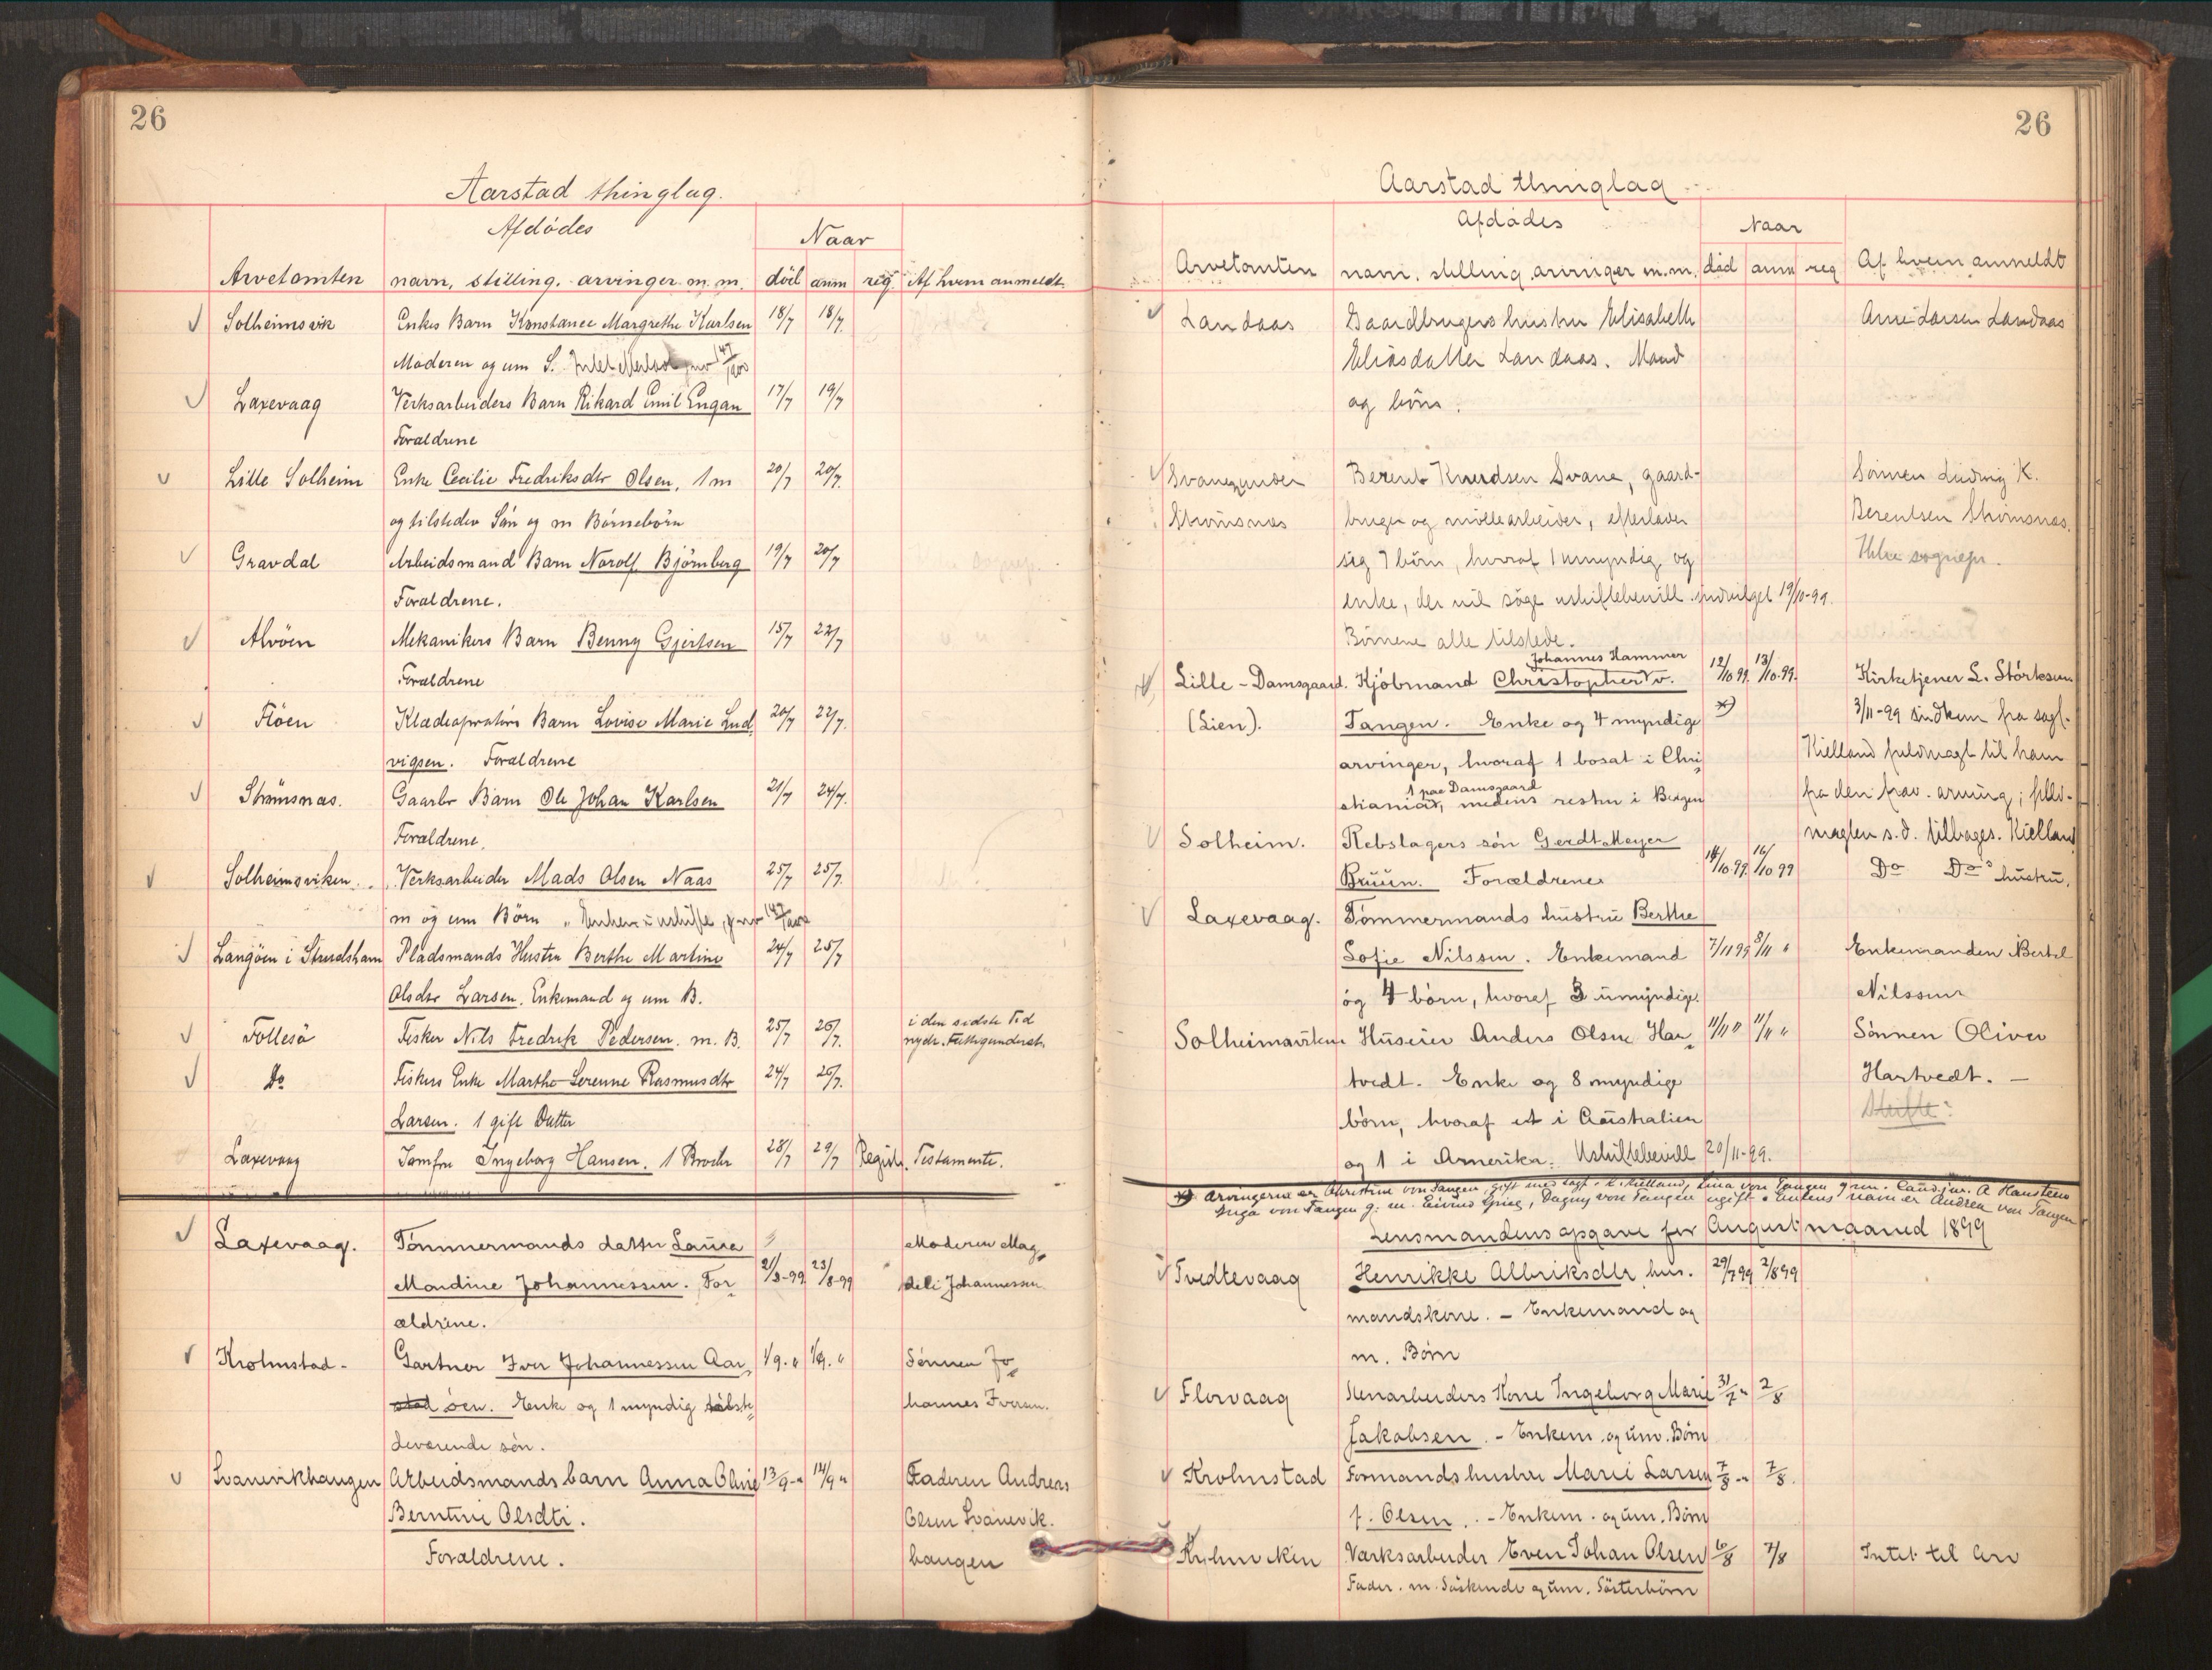 26
Aarstad thinglag.
Afdødes
Naar
Arvetomten navn, stilling. arvinger m. m. död anm reg. Af hvem anmeldt.
Solheimsvik Enkes Barn Konstance Margrethe Karlsen 18/7 18/7.
Moderen og um S.
Laxevaag Verksarbeiders Barn Rikard Emil Engan 17/7 19/7
Forældrene
Lille Solheim Enke Cecilie Fredriksdtr Olsen, 1 m 20/7 20/7.
og tilstedev Sön og m Börnebörn
Gravdal Arbeidsmand Barn Norolf Björnberg 19/7 20/7
Forældrene.
Alvöen Mekanikers Barn Benny Gjertsen 15/7 22/7
Forældrene
Flöen Klædeopratörs Barn Lovise Marie Lud 20/7 22/7.
vigsen. Forældrene
Strömsnæs. Gaarbr Barn Ole Johan Karlsen 21/7 24/7.
Forældrene.
Solheimsviken Verksarbeider Mads Olsen Naas 25/7 25/7.
m og um Börn
Langöen i Strudsham Pladsmands Hustru Berthe Martine 24/7 25/7
Olsdtr Larsen. Enkemand og um B.
Follesö Fisker Nils Fredrik Pedersen. m. B. 25/7 26/7. i den sidste Tid
nydt Fattigunderst.
Do Fiskers Enke Marthe Serenne Rasmusdtr 24/7 26/7.
Larsen. 1 gift Datter
Laxevaag Jomfru Ingeborg Hansen. 1 Broder 28/7 29/7 Registr. Testamente.
Laxevaag. Tömmermands datter Laura Moderen Mag
Mondine Johannessen. For 21/8-99 23/8-99 deli Johannessen.
ældrene.
Krohnstad - Gartner Iver Johannessen Aar 1/9. " 1/9. " Sönnen Jo
stad söen. Enke og 1 myndig tilste hannes Iversen.
deværende sön.
Svanevikhaugen Arbeidsmands barn Anna Oline 13/9-" 14/9 " Faderen Andreas
Berntine Olsdtr. Olsen Svanevik.
Forældrene. haugen
26
Aarstad thinglag
Afdödes
Naar
Arvetomten navn. stilling arvinger m.m. död anm reg Af hvem anmeldt
Landaas Gaardbrugers hustru Elisabeth Arne Larsen Landaas
Eliasdatter Landaas. Mand
og börn.
Svane under Berent Knudsen Svane, gaard- Sönnen Ludvig K.
Strömsnæs bruger og möllearbeider, efterlader Berentsen Strömsnæs.
sig 7 börn, hvoraf 1 umyndig og
enke, der vil söge uskiftebevill. indvilget 19/10-99.
Börnene alle tilstede.
Johannes Hammer
Lille-Damsgaard. Kjöbmand Christopher v. 12/10 99. 13/10-99. Kirketjener L. Störksen
(Lien). Tangen. Enke og 4 myndige 3/11-99 indkom fra sagf.
arvinger, hvoraf 1 bosat i Chri Kielland fuldmagt til ham
1 paa Damsgaard
stiania, medens resten i Bergen fra den frav. arving; fuld-
magten s.d. tilbages. Kielland
Solheim. Rebslagers sön Gerdt Meyer
Bruun. Forældrene 14/10 99. 16/10 99 Do Do's hustru.
Laxevaag. Tömmermands hustru Berthe
Sofie Nilssen. Enkemand 7/11 99 8/11 " Enkemanden Bertel
og 4 börn, hvoraf 3 umyndige. Nilssen
Solheimsviken Huseier Anders Olsen Har 11/11 " 11/11 " Sönnen Oliver
tvedt. Enke og 8 myndige Hartvedt. -
börn, hvoraf et i Australien
og 1 i Amerika. Uskiftebevill 20/11-99.
Arvingerne er Christine von Tangen, gift med sagf. Kielland, Lina von Tangen g. m. Cand. jur. A Hansteen
Inga von Tangen g. m. Eivind Grieg, Dagny von Tangen ugift. Enkens navn er Andrea von Tangen
Lensmandens opgave for August maaned 1899
Tvedtevaag Henrikke Albriksdtr hus. 29/7 99 2/8 99
mandskone. - Enkemand og
m. Börn
Florvaag Stenarbeiders Kone Ingeborg Marie 31/7 " 2/8
Jakobsen. - Enkem. og um. Börn
Krohnstad Formands hustru Marie Larsen 7/8 " 7/8.
f. Olsen. - Enkem. og um. Börn
Værksarbeider Even Johan Olsen 6/8 7/8 Intet til Arv
Fader. m. Söskende og um. Sösterbörn